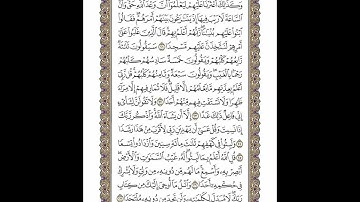 وَكَذَٰلِكَ أَعْثَرْنَا عَلَيْهِمْ لِيَعْلَمُوٓا۟ أَنَّ وَعْدَ ٱللَّهِ حَقٌّ وَأَنَّ
ٱلسَّاعَةَ لَا رَيْبَ فِيهَآ إِذْ يَتَنَٰزَعُونَ بَيْنَهُمْ أَمْرَهُمْ فَقَالُوا۟
ٱبْنُوا۟ عَلَيْهِم بُنْيَٰنًا رَّبُّهُمْ أَعْلَمُ بِهِمْ قَالَ ٱلَّذِينَ غَلَبُوا۟ عَلَىٰٓ
أَمْرِهِمْ لَنَتَّخِذَنَّ عَلَيْهِم مَّسْجِدًا ٢١ سَيَقُولُونَ ثَلَٰثَةٌ
رَّابِعُهُمْ كَلْبُهُمْ وَيَقُولُونَ خَمْسَةٌ سَادِسُهُمْ كَلْبُهُمْ
رَجْمًۢا بِٱلْغَيْبِ وَيَقُولُونَ سَبْعَةٌ وَثَامِنُهُمْ كَلْبُهُمْ قُل رَّبِّىٓ
أَعْلَمُ بِعِدَّتِهِم مَّا يَعْلَمُهُمْ إِلَّا قَلِيلٌ فَلَا تُمَارِ فِيهِمْ إِلَّا مِرَآءً
ظَٰهِرًا وَلَا تَسْتَفْتِ فِيهِم مِّنْهُمْ أَحَدًا ٢٢ وَلَا تَقُولَنَّ لِشَا۟ىْءٍ
إِنِّى فَاعِلٌ ذَٰلِكَ غَدًا ٢٣ إِلَّآ أَن يَشَآءَ ٱللَّهُ وَٱذْكُر رَّبَّكَ
إِذَا نَسِيتَ وَقُلْ عَسَىٰٓ أَن يَهْدِيَنِ رَبِّى لِأَقْرَبَ مِنْ هَٰذَا رَشَدًا
٢٤ وَلَبِثُوا۟ فِى كَهْفِهِمْ ثَلَٰثَ مِا۟ئَةٍ سِنِينَ وَٱزْدَادُوا۟ تِسْعًا
٢٥ قُلِ ٱللَّهُ أَعْلَمُ بِمَا لَبِثُوا۟ لَهُۥ غَيْبُ ٱلسَّمَٰوَٰتِ وَٱلْأَرْضِ
أَبْصِرْ بِهِۦ وَأَسْمِعْ مَا لَهُم مِّن دُونِهِۦ مِن وَلِىٍّ وَلَا يُشْرِكُ
فِى حُكْمِهِۦٓ أَحَدًا ٢٦ وَٱتْلُ مَآ أُوحِىَ إِلَيْكَ مِن كِتَابِ
رَبِّكَ لَا مُبَدِّلَ لِكَلِمَٰتِهِۦ وَلَن تَجِدَ مِن دُونِهِۦ مُلْتَحَدًا ٢٧